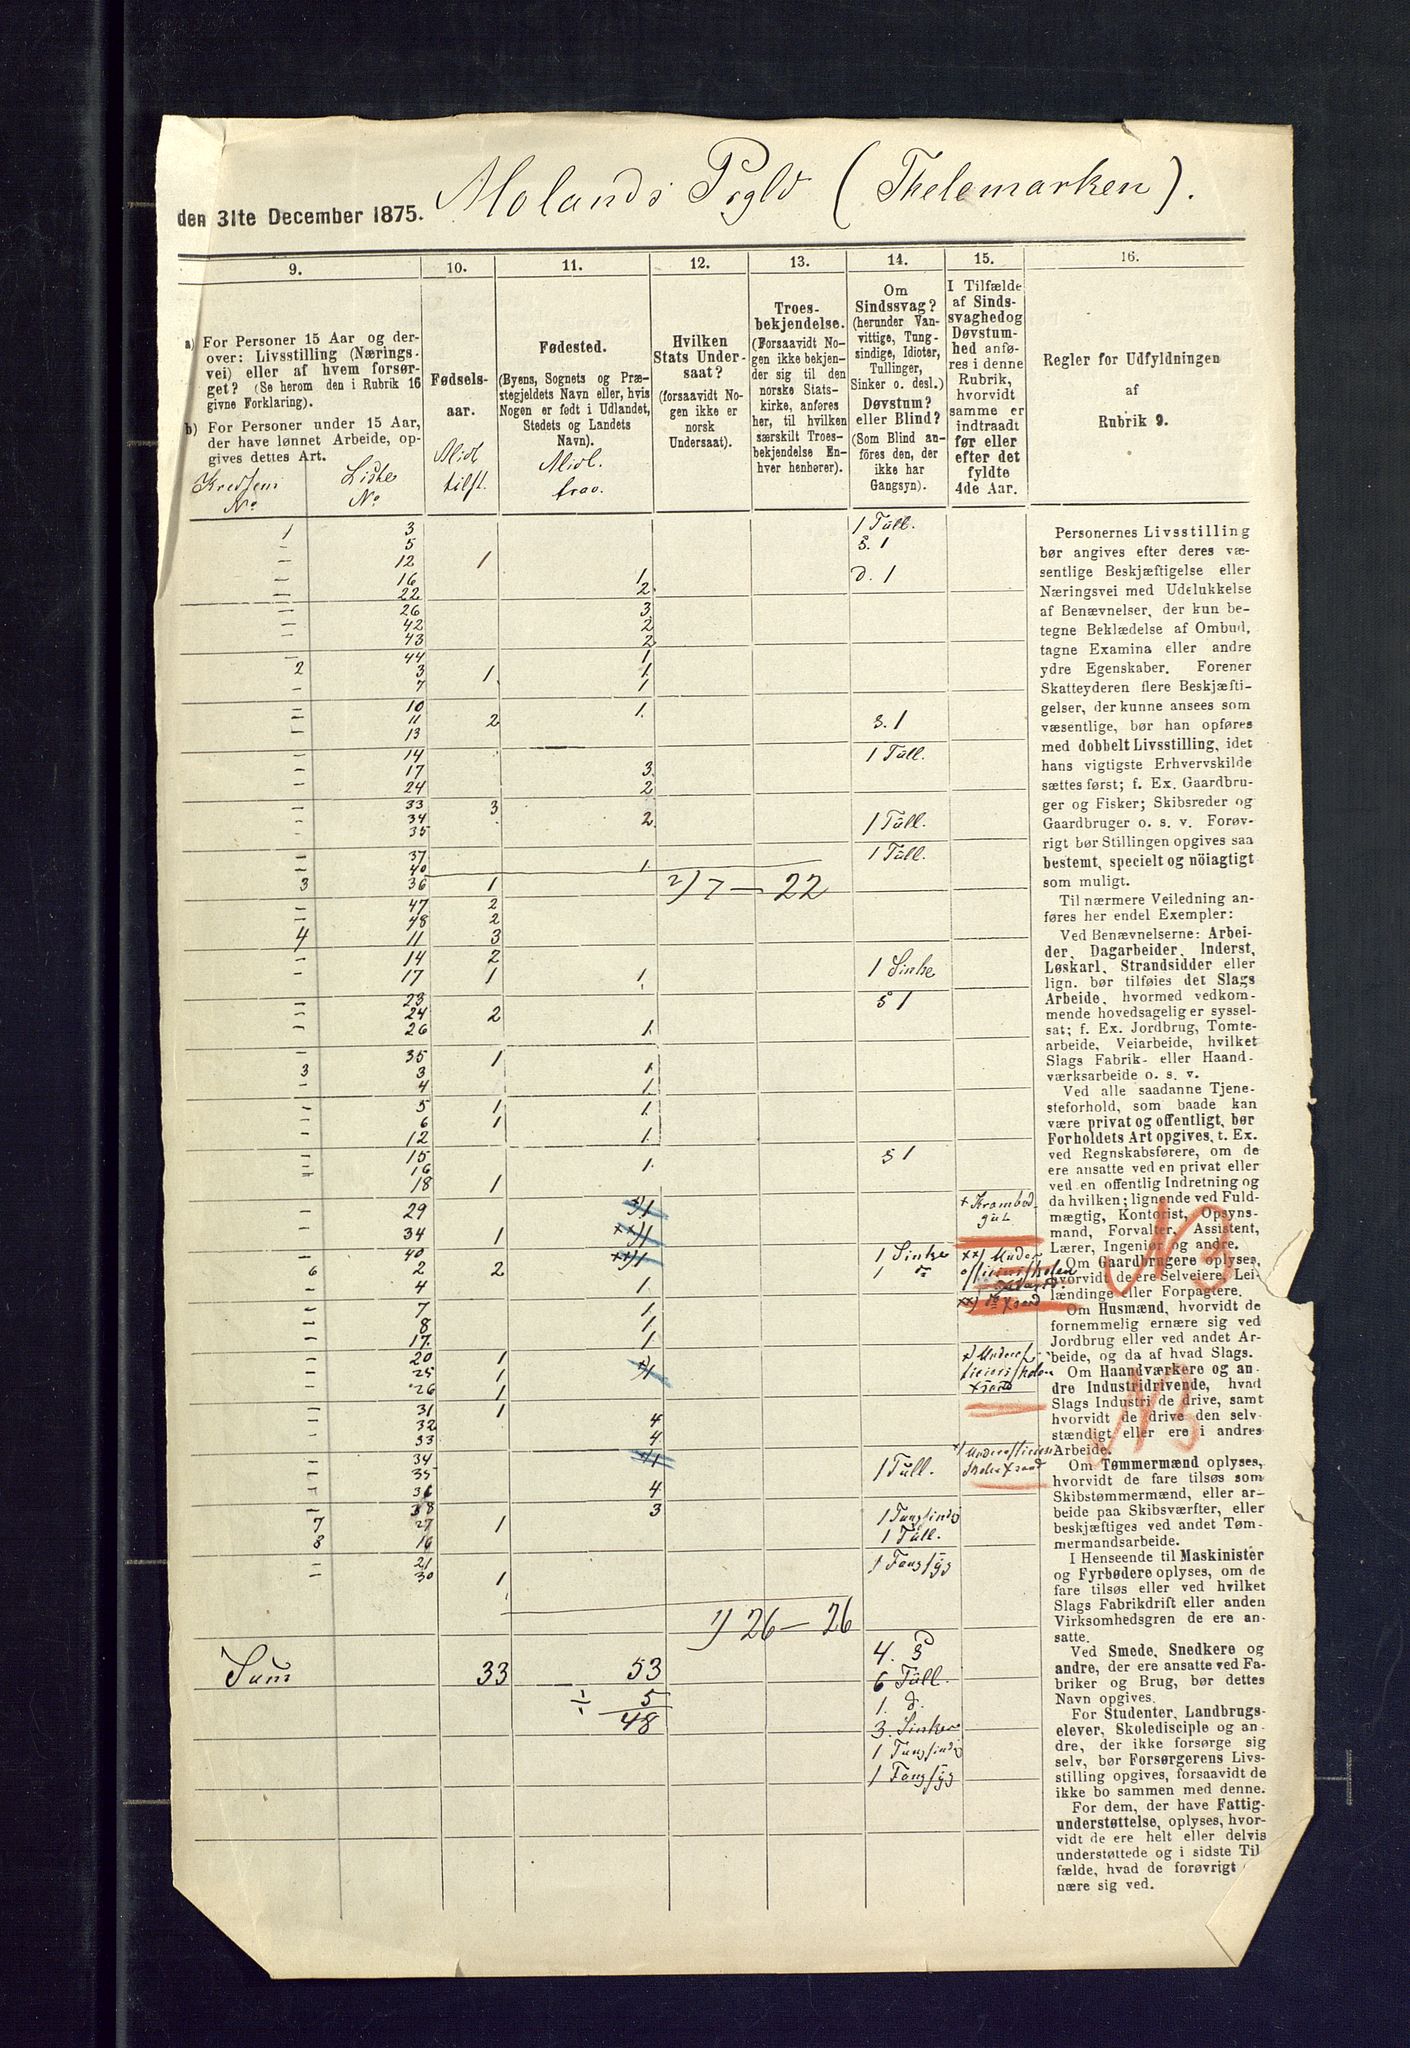 Molands Prgld (Thelemarken).
den 31te December 1875.
9. 10. 11. 12. 13. 14. 15. 16.
a) For Personer 15 Aar og der-
over: Livsstilling (Nærings-
vei) eller af hvem forsør-
get? (Se herom den i Rubrik 16
givne Forklaring).
b) For Personer under 15 Aar,
der have lønnet Arbeide, op-
gives dettes Art.
Kredsens
No
Liste
No.
Fødsels-
aar.
Midl
tilst.
Fødested.
(Byens, Sognets og Præ-
stegjeldets Navn eller, hvis
Nogen er født i Udlandet,
Stedets og Landets
Navn).
Midl.
frav.
Hvilken
Stats Under-
saat?
(forsaavidt No-
gen ikke er
norsk
Undersaat).
Troes-
bekjendelse.
(Forsaavidt No-
gen ikke bekjen-
der sig til den
norske Stats-
kirke, anføres
her, til hvilken
særskilt Troes-
bekjendelse En-
hver henhører).
Om
Sindssvag?
(herunder Van-
vittige, Tung-
sindige, Idioter,
Tullinger,
Sinker o. desl.)
Døvstum?
eller Blind?
(Som Blind an-
føres den, der
ikke har
Gangsyn).
I Tilfælde
af Sinds-
svaghed og
Døvstum-
hed anfø-
res i denne
Rubrik,
hvorvidt
samme er
indtraadt
før eller
efter det
fyldte
4de Aar.
Regler for Udfyldningen
af
Rubrik 9.
1 3 1 Tull.
" 5 S. 1
" 12 1
" 16 1 d. 1
" 22 2
" 26 3
" 42 2
" 43 2
" 44 1
2 3 1 1
" 7 1
" 10 1
" 11 2 S. 1
" 13
" 14 1 Tull.
" 17 3
" 24 2
" 33 3
" 34 2 1 Tull.
" 35
" 37 1 Tull.
" 40 1
3 36 1 2) 7 — 22
" 47 2
" 48 2
4 11 3
" 14 2
" 17 1 1 1 Sinke
" 23 S 1
" 24 2
" 26 1
" 35 1
3 3 1
" 4 1
" 5 1 1
" 6 1
" 12 1
" 15 S 1
" 16 1
" 18 1
" 29 x) 1 + Krambod-
gut
" 34 1 xx) 1
" 40 xx) 1 1 Sinke xx) Under
6 2 2 1 do
" 4 1
" 7 1
" 8 1
" 17. 1
" 20 1
" 25 1 x) 1
" 26 1
" 31 1
" 32 4
" 33 4
" 34 x) 1
" 35 1 Tull.
" 36 4
" 38 3 1 Tungsindig
7 27 1 1 Tull.
8 16
" 21 1 Tungsyg
" 30 1
1) 26 — 26
Sum 33 53 4. S
÷ 5 6 Tull.
48 1. d.
3. Sinker
1 Tungsindig
1 Tungsyg
NB
NB
Personernes Livsstilling
bør angives efter deres væ-
sentlige Beskjæftigelse eller
Næringsvei med Udelukkelse
af Benævnelser, der kun be-
tegne Beklædelse af Ombud,
tagne Examina eller andre
ydre Egenskaber. Forener
Skatteyderen flere Beskjæfti-
gelser, der kunne ansees som
væsentlige, bør han opføres
med dobbelt Livsstilling, idet
hans vigtigste Erhvervskilde
sættes først; f. Ex. Gaardbru-
ger og Fisker; Skibsreder og
Gaardbruger o. s. v. Forøv-
rigt bør Stillingen opgives saa
bestemt, specielt og nöiagtigt
som muligt.
Til nærmere Veiledning an-
føres her endel Exempler:
Ved Benævnelserne: Arbei-
der, Dagarbeider, Inderst,
Løskarl, Strandsidder eller
lign. bør tilføies det Slags
Arbeide, hvormed vedkom-
mende hovedsagelig er syssel-
sat; f. Ex. Jordbrug, Tomte-
arbeide, Veiarbeide, hvilket
Slags Fabrik- eller Haand-
værksarbeide o. s. v.
Ved alle saadanne Tjene-
steforhold, som baade kan
være privat og offentligt, bør
Forholdets Art opgives, t. Ex.
ved Regnskabsførere, om de
ere ansatte ved en privat eller
ved en offentlig Indretning og
da hvilken; lignende ved Fuld-
mægtig, Kontorist, Opsyns-
mand, Forvalter, Assistent,
Lærer, Ingeniør og andre.
Om Gaardbrugere oplyses,
hvorvidt de ere Selveiere, Lei-
lændinge eller Forpagtere.
Om Husmænd, hvorvidt de
fornemmelig ernære sig ved
Jordbrug eller ved andet Ar-
beide, og da af hvad Slags.
Om Haandværkere og an-
dre Industridrivende, hvad
Slags Industri de drive, samt
hvorvidt de drive den selv-
stændigt eller ere i andres
Arbeide.
Om Tømmermænd oplyses,
hvorvidt de fare tilsøs som
Skibstømmermænd, eller ar-
beide paa Skibsværfter, eller
beskjæftiges ved andet Tøm-
mermandsarbeide.
I Henseende til Maskinister
og Fyrbødere oplyses, om de
fare tilsøs eller ved hvilket
Slags Fabrikdrift eller anden
Virksomhedsgren de ere an-
satte.
Ved Smede, Snedkere og
andre, der ere ansatte ved Fa-
briker og Brug, bør dettes
Navn opgives.
For Studenter, Landbrugs-
elever, Skoledisciple og an-
dre, der ikke forsørge sig
selv, bør Forsørgerens Livs-
stilling opgives, forsaavidt de
ikke bo sammen med denne.
For dem, der have Fattig-
understøttelse, oplyses, hvor-
vidt de ere helt eller delvis
understøttede og i sidste Til
fælde, hvad de forøvrigt
nære sig ved.